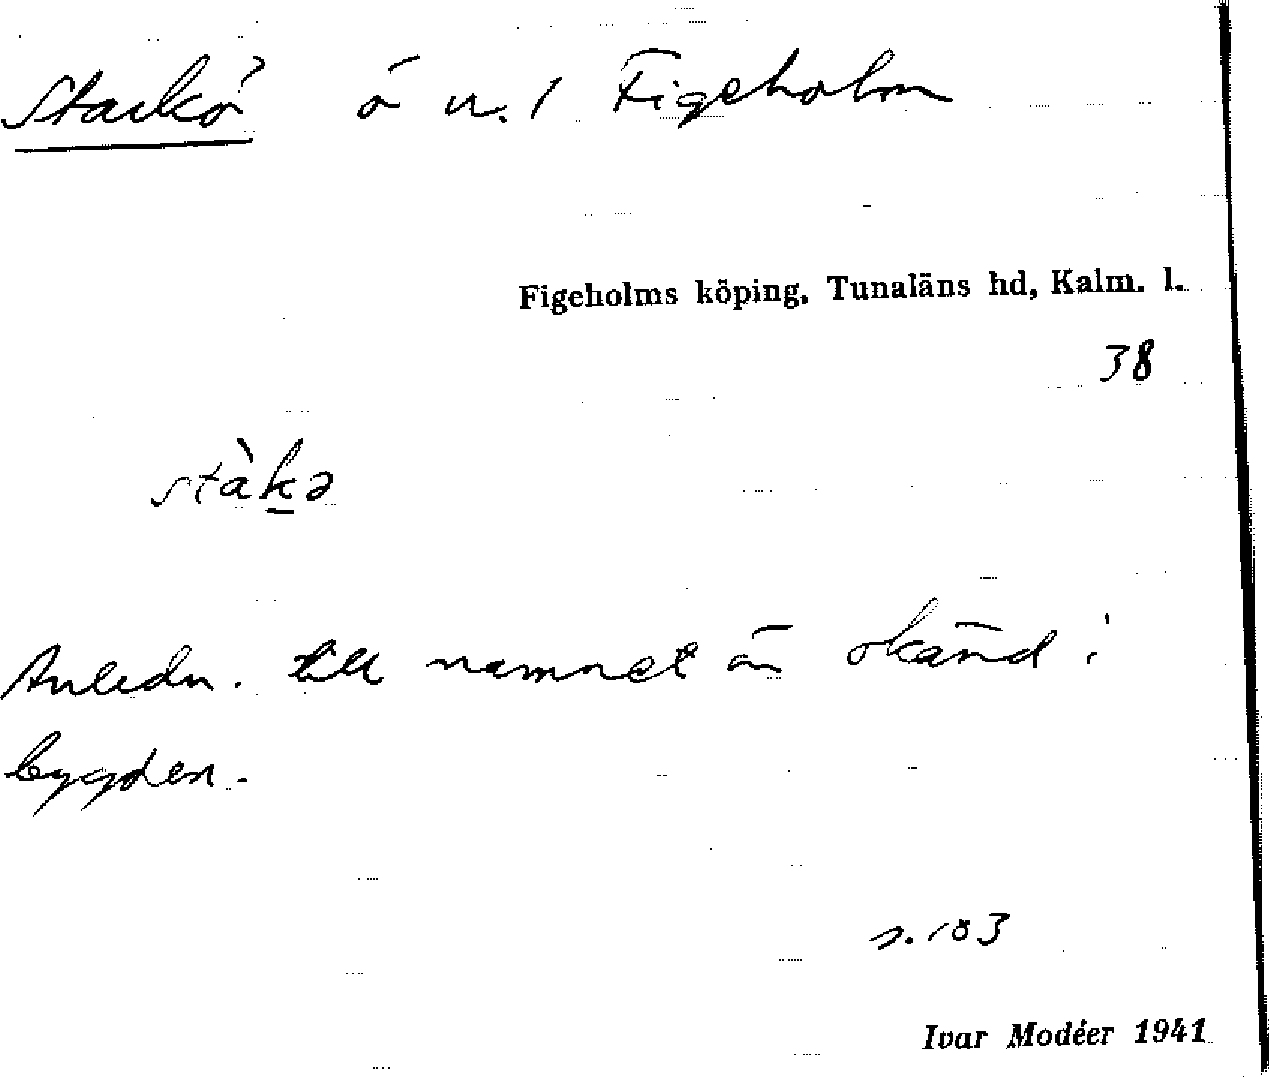 Stackö ö n. 1 Figeholm
Figeholms köping, Tunaläns hd, Kalm. l.
38
stàkə
Anledn. till namnet är okänd i
bygden.
s. 103
Ivar Modéer 1941